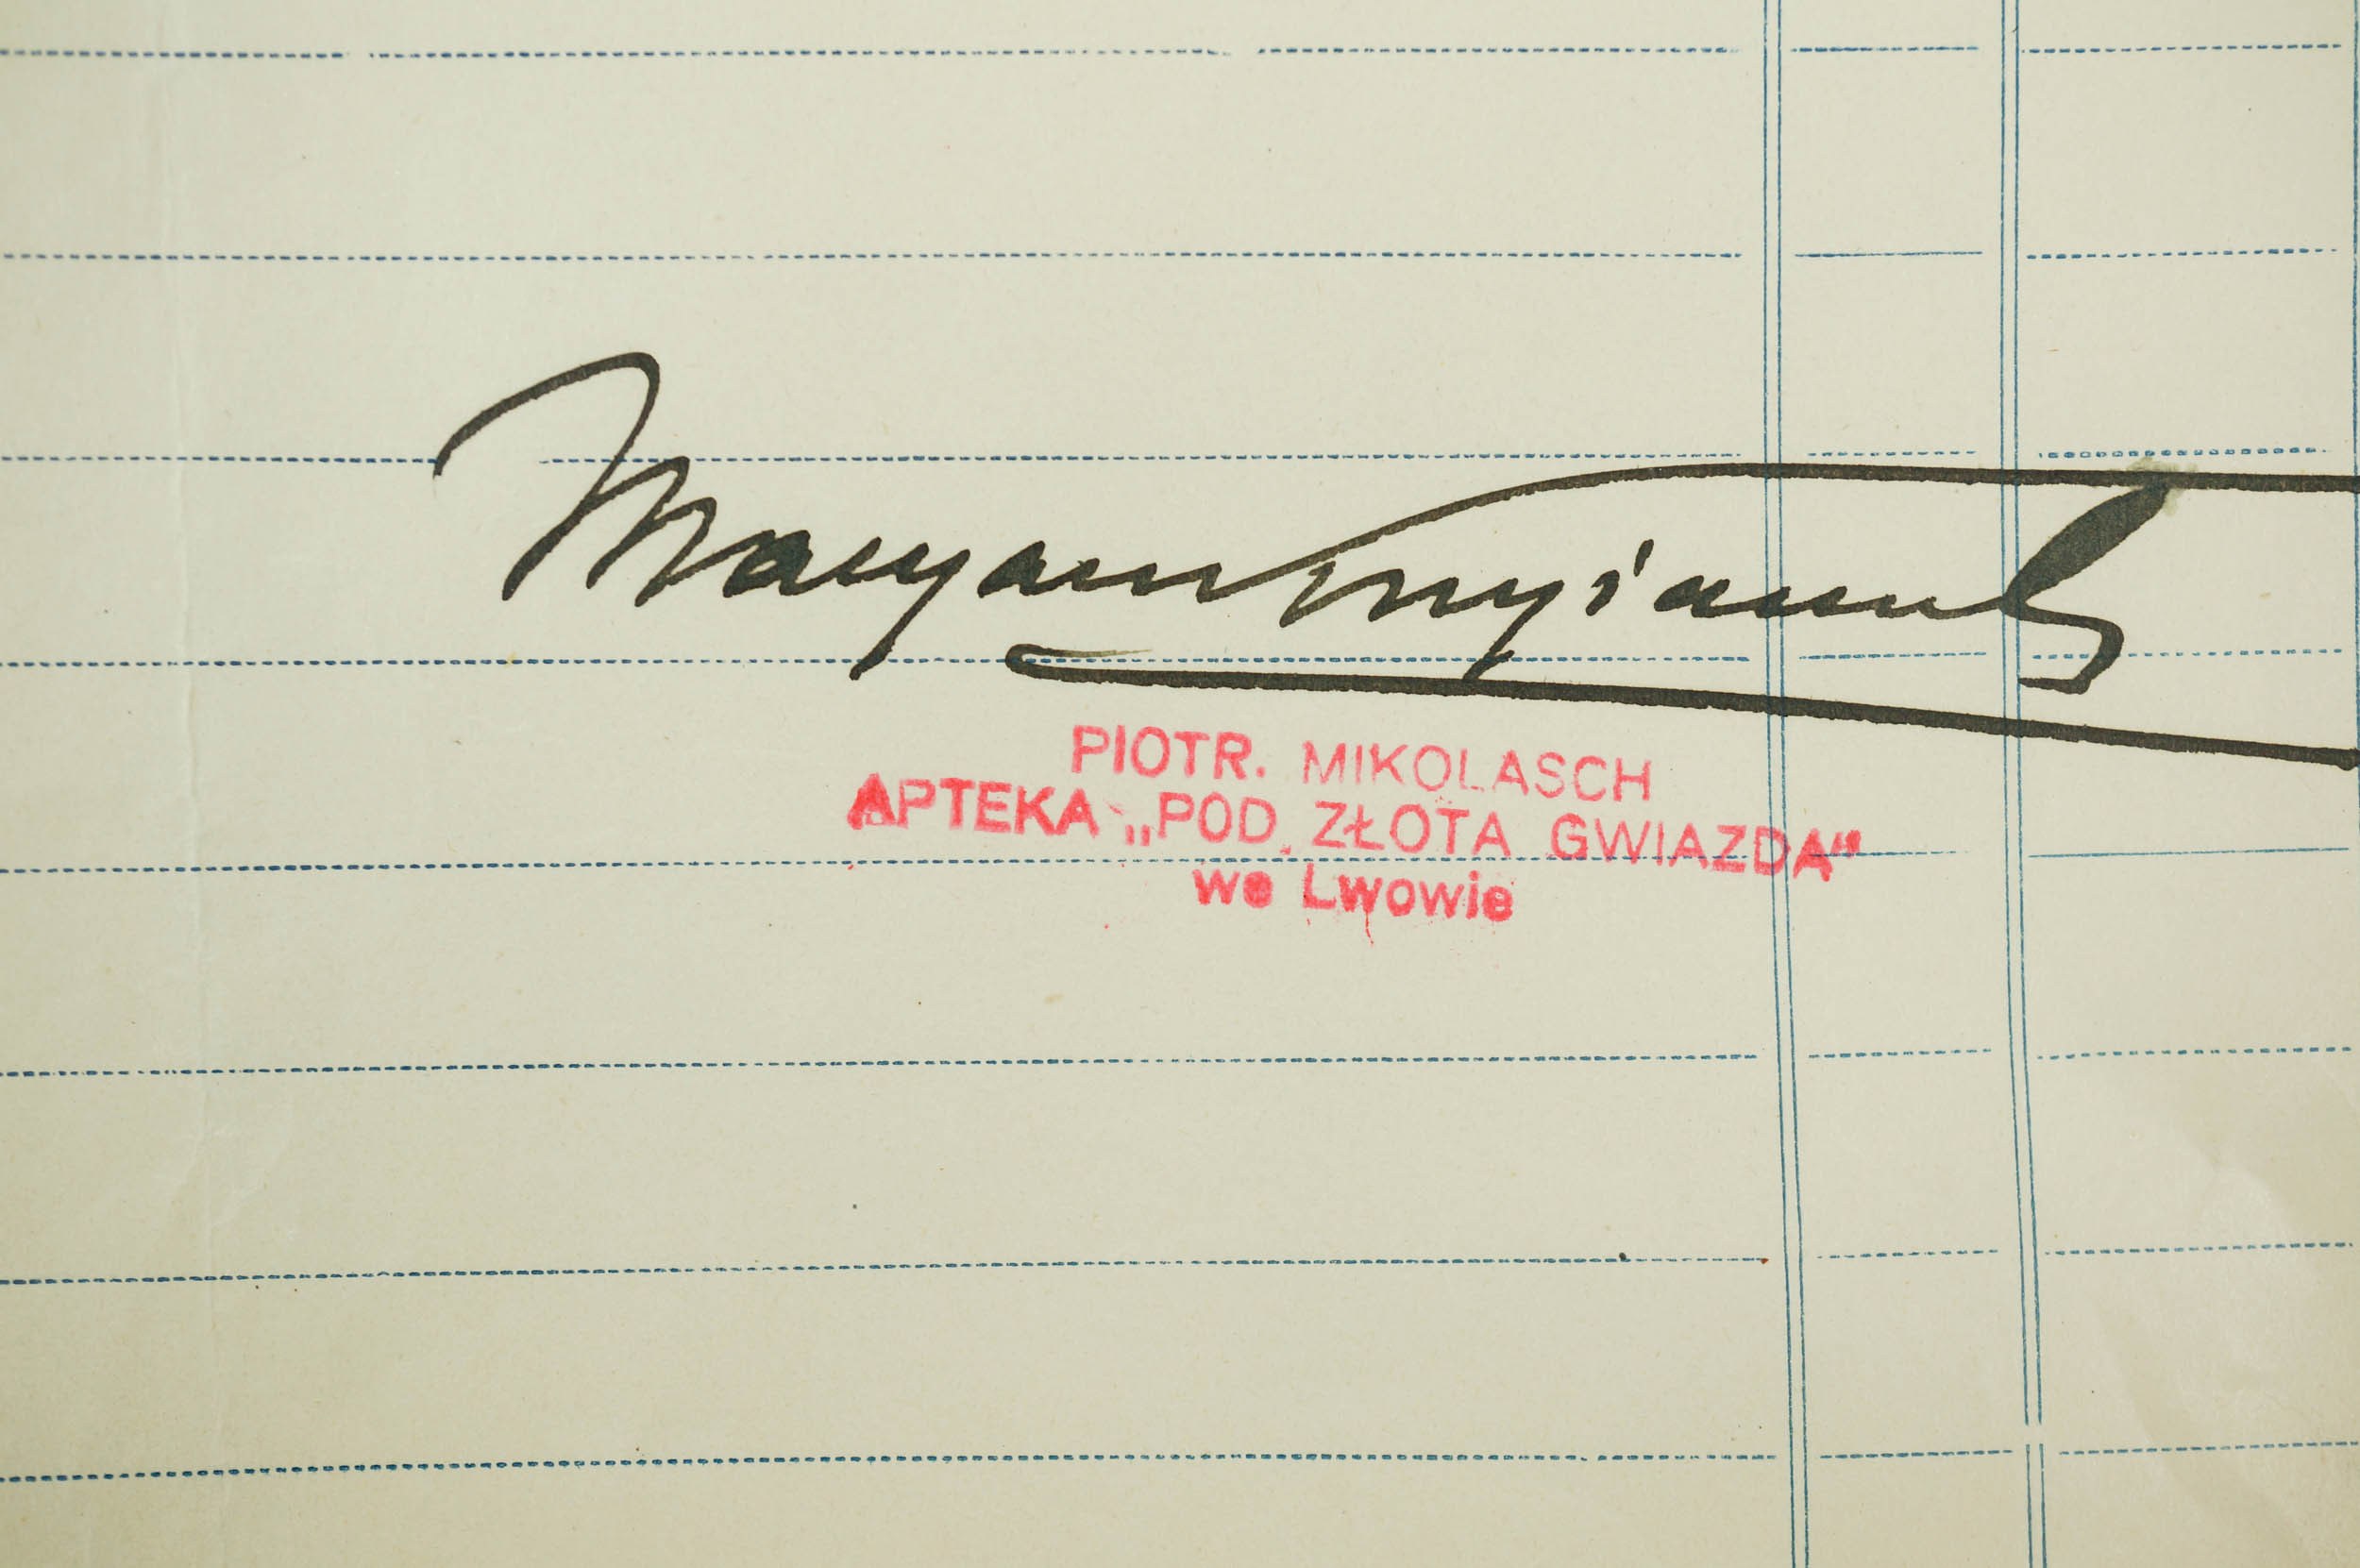 Maryan
PIOTR. MIKOLASCH
APTEKA „POD ZŁOTA GWIAZDA"
we Lwowie